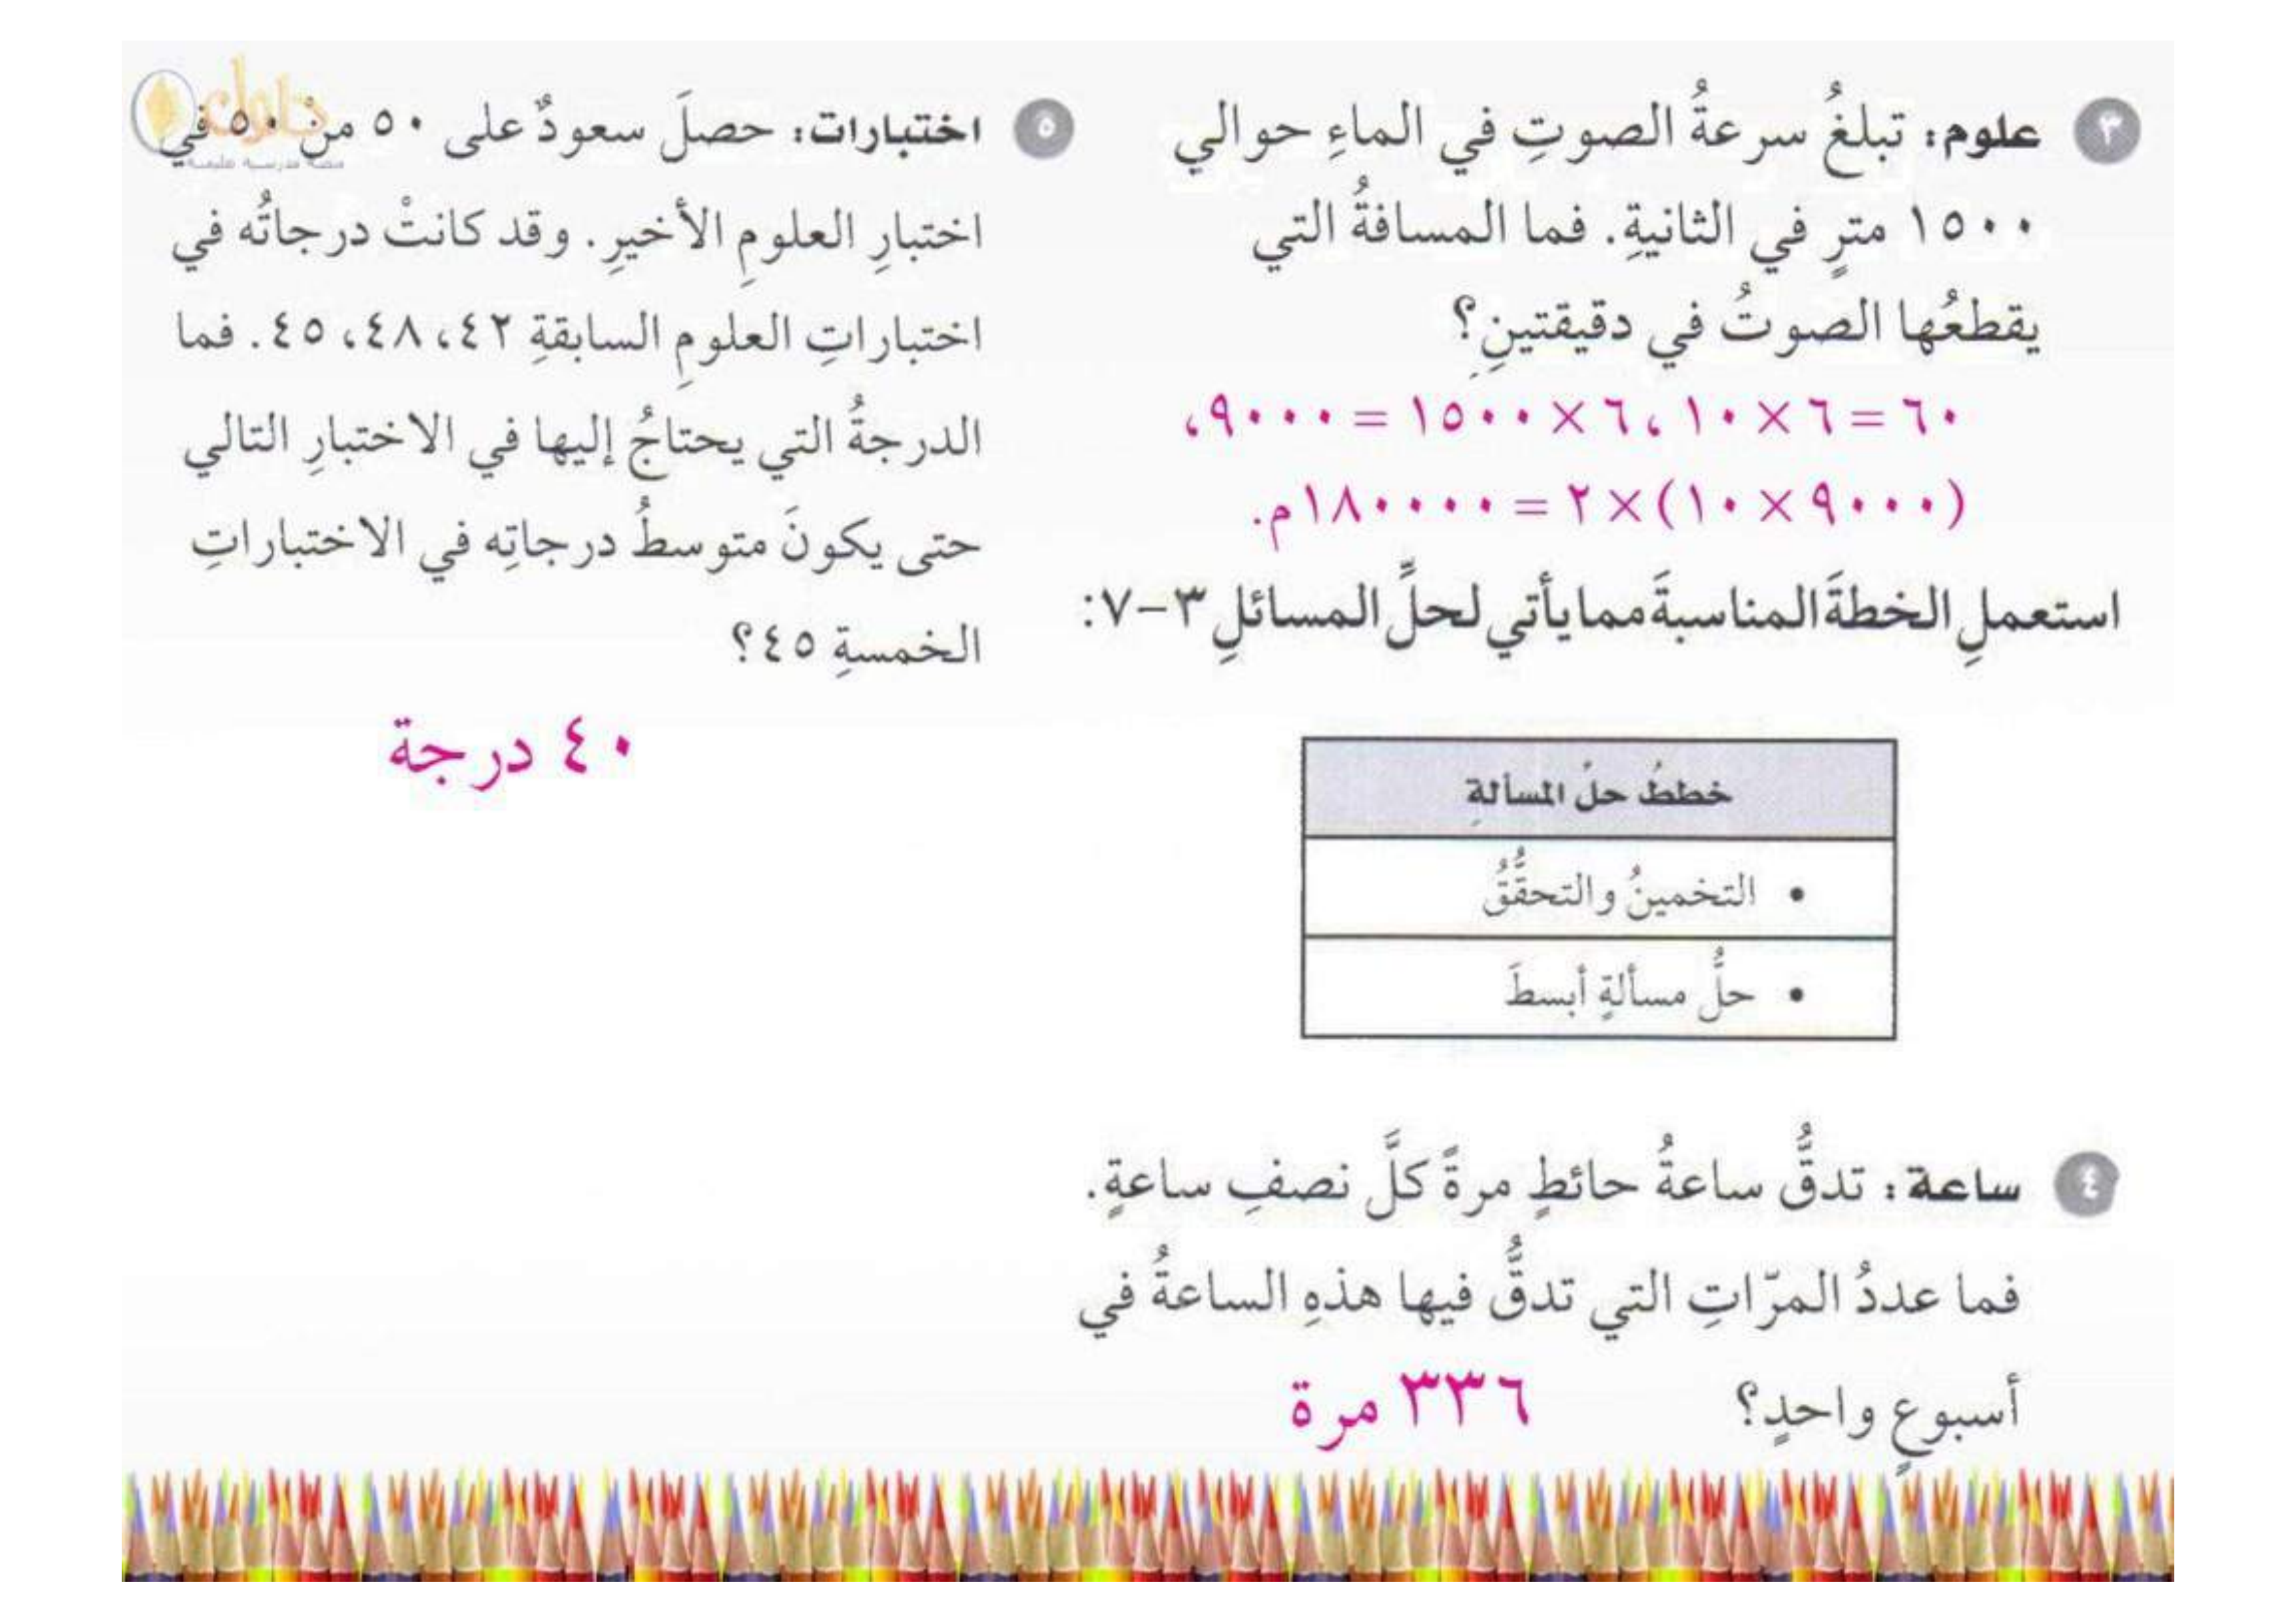 ٣ علوم: تبلغُ سرعةُ الصوتِ في الماءِ حوالي
١٥٠٠ مترٍ في الثانيةِ. فما المسافةُ التي
يقطعُها الصوتُ في دقيقتينِ؟
٦٠ = ٦ × ١٠ ، ٦ × ١٥٠٠ = ٩٠٠٠ ،
(٩٠٠٠ × ١٠) × ٢ = ١٨٠٠٠٠ م.
استعملِ الخطةَ المناسبةَ مما يأتي لحلِّ المسائلِ ٣–٧:
خططُ حلِّ المسألةِ
• التخمينُ والتحقُّقُ
• حلُّ مسألةٍ أبسطَ
٤ ساعة: تدقُّ ساعةُ حائطٍ مرةً كلَّ نصفِ ساعةٍ.
فما عددُ المرّاتِ التي تدقُّ فيها هذهِ الساعةُ في
أسبوعٍ واحدٍ؟ ٣٣٦ مرة
٥ اختبارات: حصلَ سعودٌ على ٥٠ منْ ٥٠ في
اختبارِ العلومِ الأخيرِ. وقد كانتْ درجاتُه في
اختباراتِ العلومِ السابقةِ ٤٢، ٤٨، ٤٥. فما
الدرجةُ التي يحتاجُ إليها في الاختبارِ التالي
حتى يكونَ متوسطُ درجاتِه في الاختباراتِ
الخمسةِ ٤٥؟
٤٠ درجة
حلول